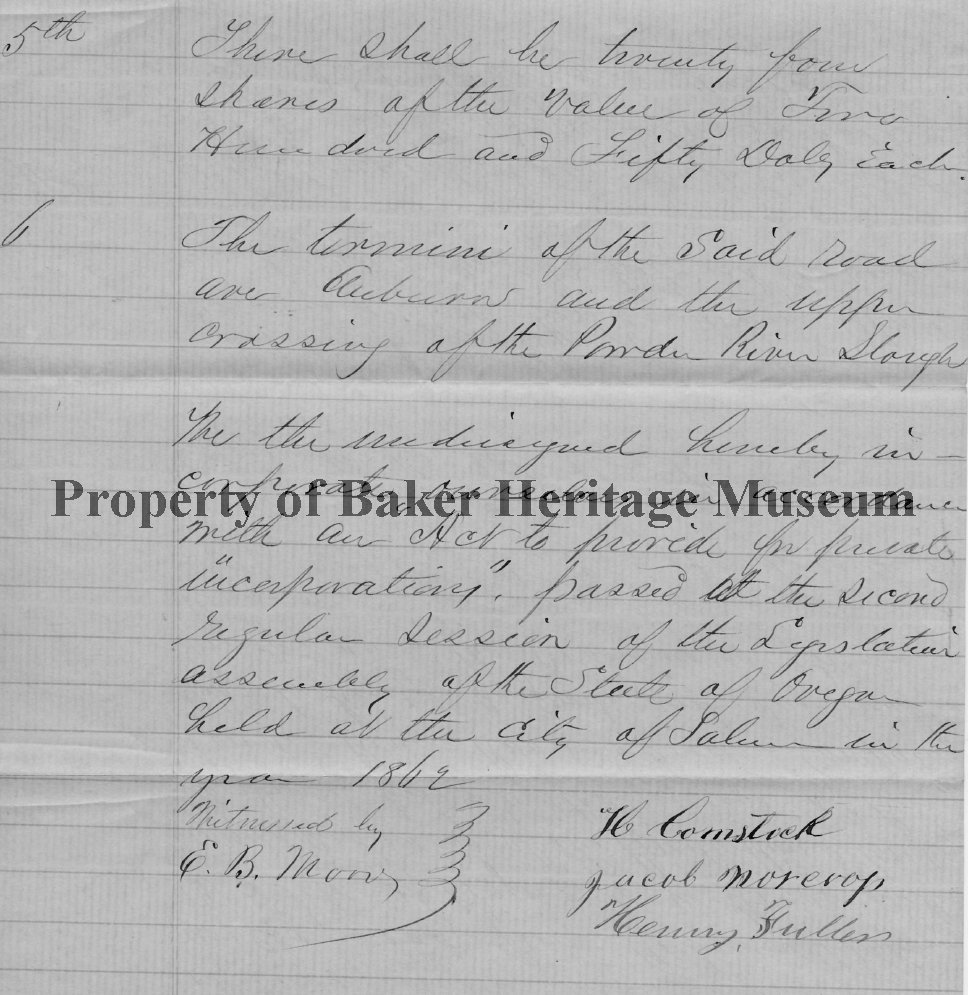 5th There shall be twenty four
shares of the value of Two
Hundred and Fifty Dols Each.
6 The termini of the Said road
are Auburn and the upper
crossing of the Powder River Slough
We the undersigned hereby in-
corporate ourselves in accordance
Property of Baker Heritage Museum
with an Act to provide for private
"incorporations", passed at the second
regular session of the Legislative
assembly of the State of Oregon
held at the City of Salem in the
year 1862
Witnessed by
E. B. Moore
H Comstock
Jacob Norcrop
Henry Fuller